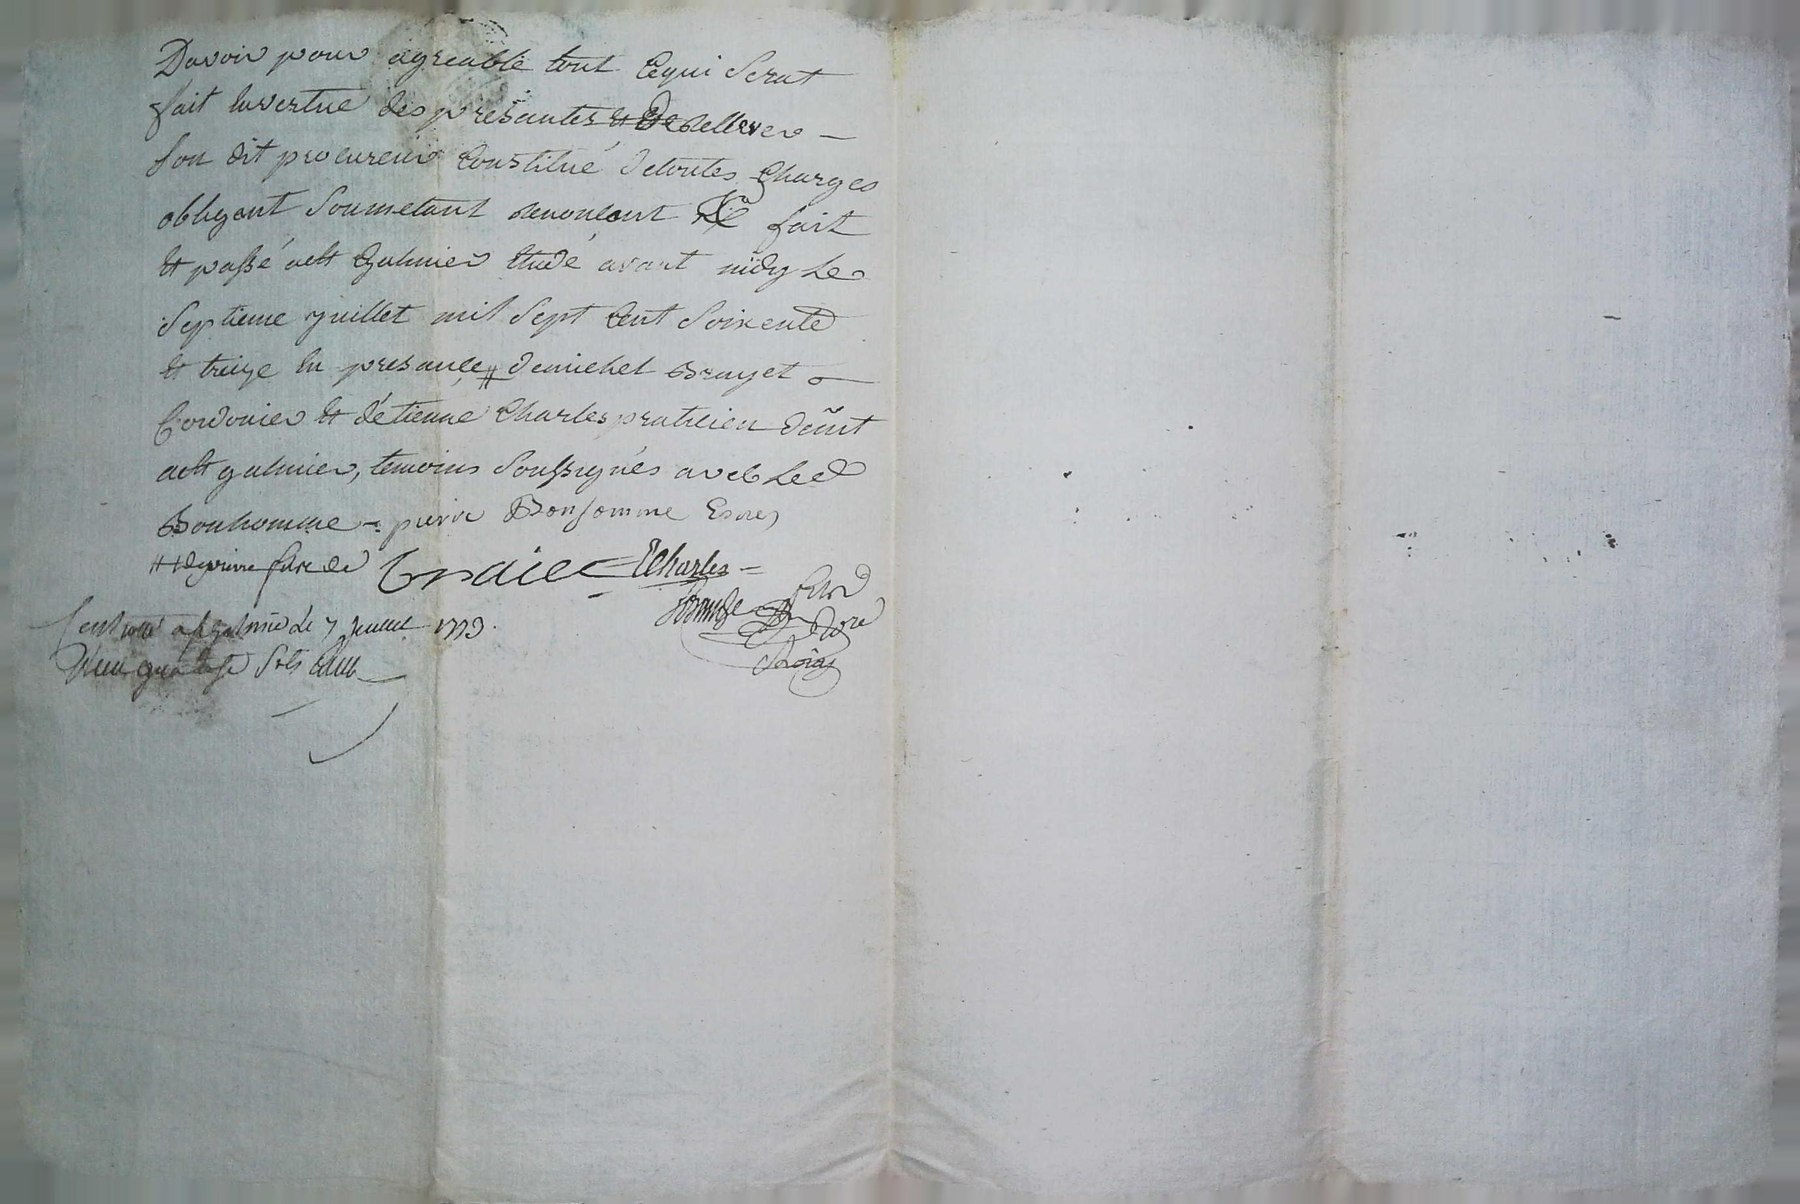 Davoir pour agreable tout cequi serat
fait en vertue des presantes et de Rellever
son dit procureur Constitué detoutes Charges
obligent Soumetant Renonçant &c fait
et passé a St Galmier Etude avant midy Le
Septieme juillet mil Sept Cent Soixente
et treize en presance # demichel Brayet
Cordonier et détienne Charles praticien
a St galmier, temoins Soussignés avec Led
Bonhomme - pierre Bonhomme
ECharles
a St Galmier le 7 Juillet 1773.
sols